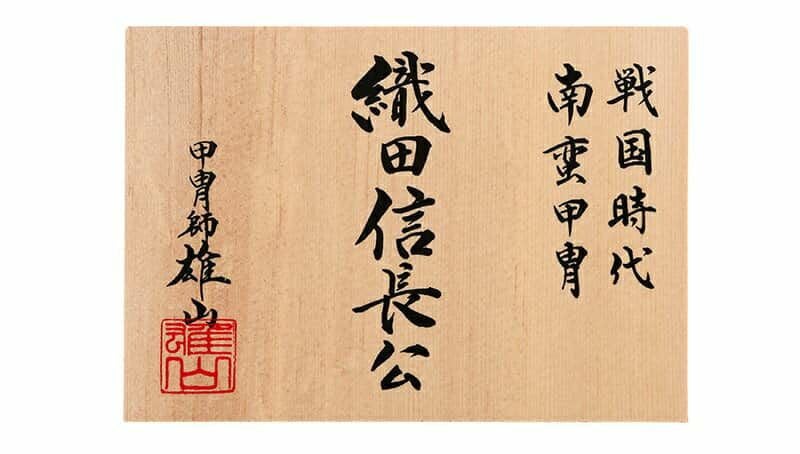 戦国時代
南蛮甲冑
織田信長公
甲冑師 雄山
雄山